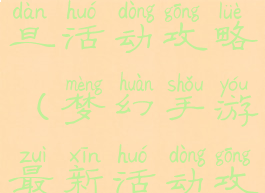 dàn huó dòng gōng lüè
旦活动攻略
mèng huàn shǒu yóu
（梦幻手游
zuì xīn huó dòng gōng
最新活动攻